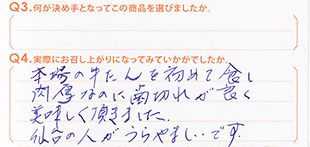 Q3.何が決め手となってこの商品を選びましたか。
Q4.実際にお召し上がりになってみていかがでしたか。
本場の牛たんを初めて食し
肉厚なのに歯切れが良く
美味しく頂きました。
仙台の人がうらやましいです。